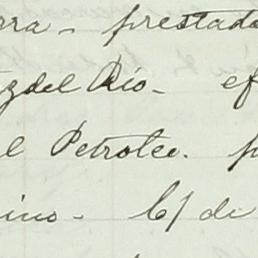 rra - prestado
zdel Río - ef
l Petrolee. p
ino - C/ de